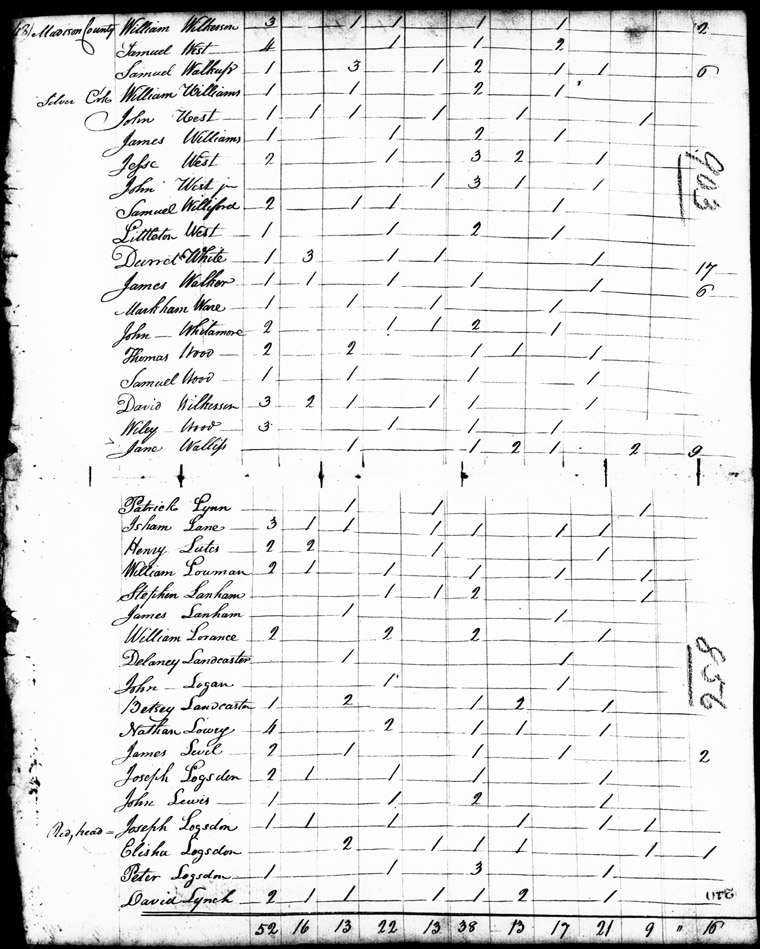 Madison County William Wilkerson 3 1 1 1 1 2
Samuel West 4 1 1 2
Samuel Walkup 1 3 1 2 1 1 6
Silver Crk William Williams 1 1 2 1
John West 1 1 1 1 1 1
James Williams 1 1 2 1
Jesse West 2 1 3 2 1
John West jr 1 3 1 1
Samuel Williford 2 1 1 1
Littleton West 1 1 2 1
Durret White 1 3 1 1 1 17
James Walker 1 1 1 1 1 6
Markham Ware 1 1 1 1
John Whitamore 2 1 1 2 1
Thomas Wood 2 2 1 1 1
Samuel Wood 1 1 1 1
David Wilkerson 3 2 1 1 1 1
Wiley Wood 3 1 1 1
Jane Wallis 1 1 2 1 2 9
903
Patrick Lynn 1 1 1
Isham Lane 3 1 1 1 1 1 1
Henry Lutes 2 2 1 1
William Lowman 2 1 1 1 1 1
Stephen Lanham 1 1 2 1
James Lanham 1 1
William Lorance 2 2 2 1
Delaney Landcaster 1 1
John Logan 1 1
Betsey Landcaster 1 2 1 2 1
Nathan Lowry 4 2 1 1 1
James Levil 2 1 1 1 2
Joseph Logsden 2 1 1 1 1
John Lewis 1 1 2 1
Red, head = Joseph Logsdon 1 1 1 1 1 1
Elisha Logsdon 2 1 1 1 1 1
Peter Logsdon 1 1 3 1
David Lynch 2 1 1 1 1 2 1
856
52 16 13 22 13 38 13 17 21 9 " 16